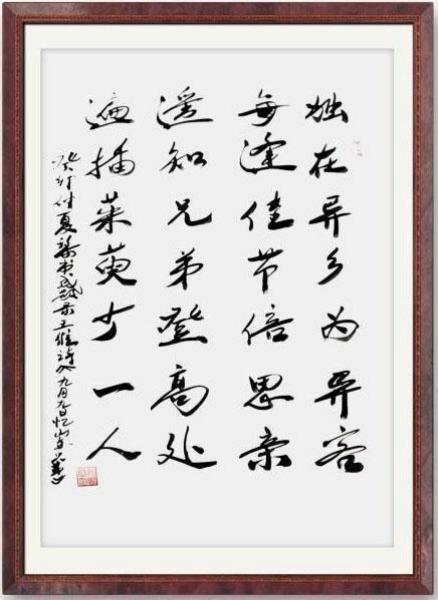 独在异乡为异客
每逢佳节倍思亲
遥知兄弟登高处
遍插茱萸少一人
夏 书 王维诗 九月九日忆山东